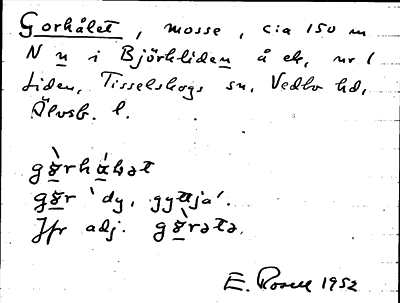 Gorhålet, mosse, cia 150 m
N n i Björkliden å ek, nr 1
Liden, Tisselskogs sn, Vedbo hd,
Älvsb. l.
gɤ̀rhálət
gɤr 'dy, gyttja'.
Jfr adj. gɤ̀rətə.
E. Rosell 1952